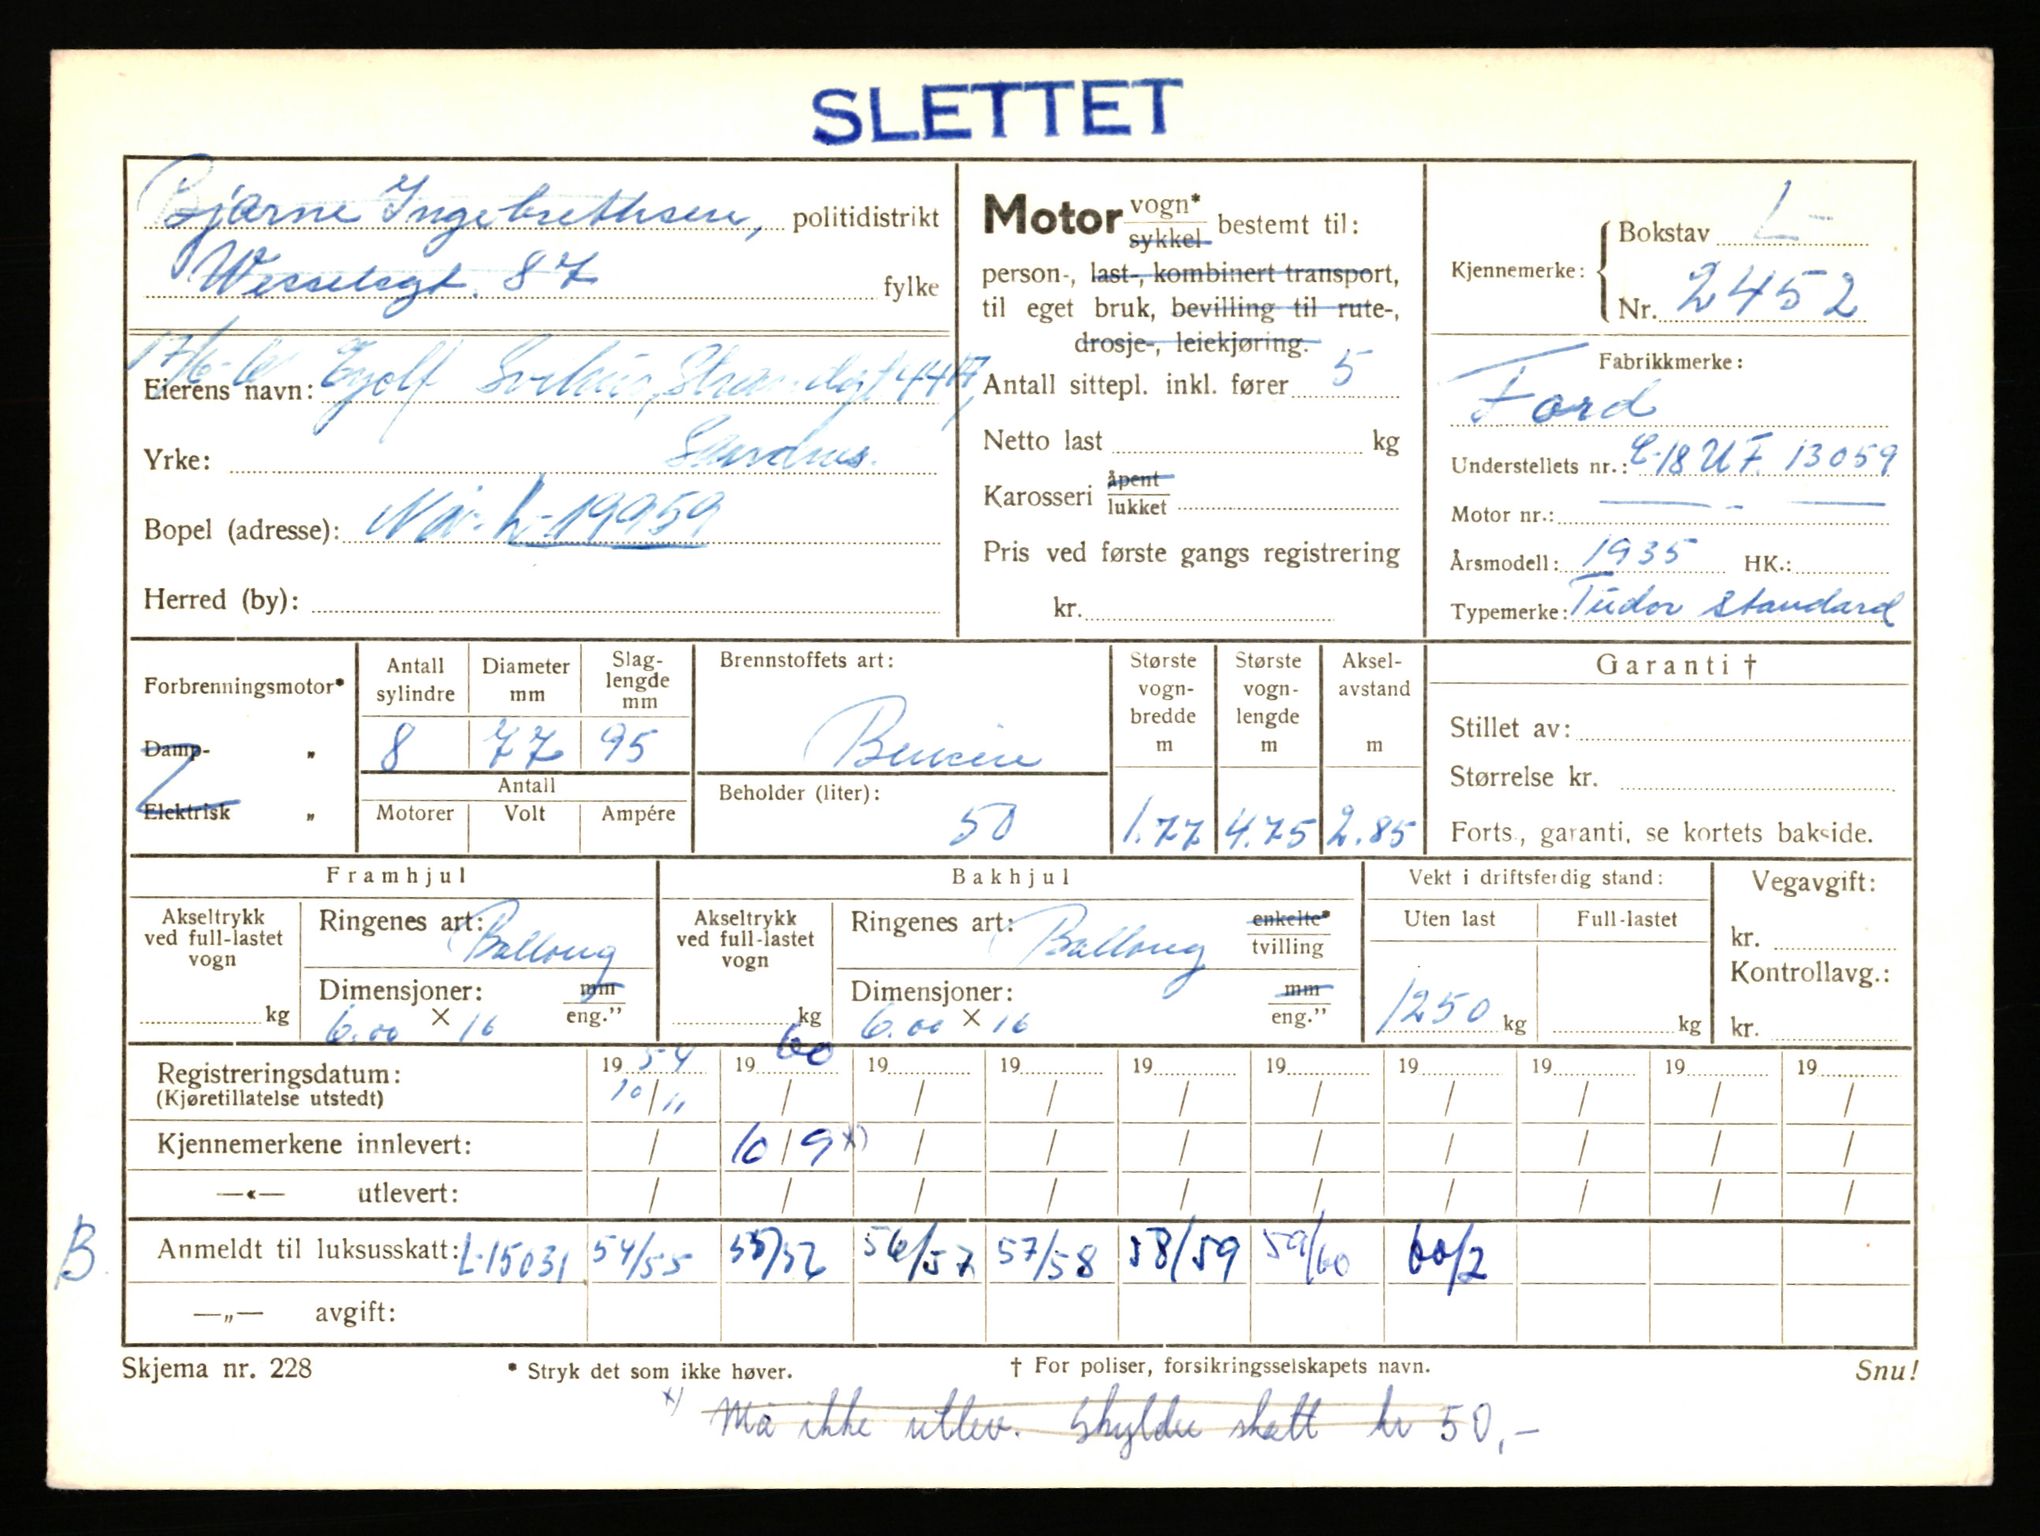 SLETTET
Bjarne Ingebrethsen, politidistrikt
Wesselsgt. 87 fylke
Eierens navn: Eyolf 44
Yrke: Sandnes.
Bopel (adresse): Nå: L-19959
Herred (by):
Motor vogn* sykkel bestemt til:
person-, last-, kombinert transport,
til eget bruk, bevilling til rute-,
drosje-, leiekjøring.
Antall sittepl. inkl. fører 5
Netto last kg
Karosseri åpent lukket
Pris ved første gangs registrering
kr.
Kjennemerke: Bokstav L-
Nr. 2452
Fabrikkmerke:
Ford
Understellets nr.: C-18 UF. 13059
Motor nr.: — - —
Årsmodell: 1935 HK.:
Typemerke: Tudor standard
Forbrenningsmotor*
Damp- „
Elektrisk „
Antall sylindre Diameter mm Slag-lengde mm
8 77 95
Antall
Motorer Volt Ampére
Brennstoffets art:
Bensin
Beholder (liter):
50
Største vogn-bredde m
1.77
Største vogn-lengde m
4.75
Aksel-avstand m
2.85
Garanti †
Stillet av:
Størrelse kr.
Forts., garanti, se kortets bakside.
Framhjul
Akseltrykk ved full-lastet vogn
kg
Ringenes art: Ballong
Dimensjoner: mm eng."
6.00 × 16
Bakhjul
Akseltrykk ved full-lastet vogn
kg
Ringenes art: Ballong enkelte* tvilling
Dimensjoner: mm eng."
6.00 × 16
Vekt i driftsferdig stand:
Uten last Full-lastet
1250 kg kg
Vegavgift:
kr.
Kontrollavg.:
kr.
Registreringsdatum: 19 54 19 60 19 19 19 19 19 19 19 19
(Kjøretillatelse utstedt) 10/11 / / / / / / / / /
Kjennemerkene innlevert: / 10/9 x) / / / / / / / /
—«— utlevert: / / / / / / / / / /
B Anmeldt til luksusskatt: L-15031 54/55 55/56 56/57 57/58 58/59 59/60 60/2
—„— avgift:
Skjema nr. 228 * Stryk det som ikke høver. † For poliser, forsikringsselskapets navn. Snu!
x) Må ikke utlev. Skylder skatt kr 50,-